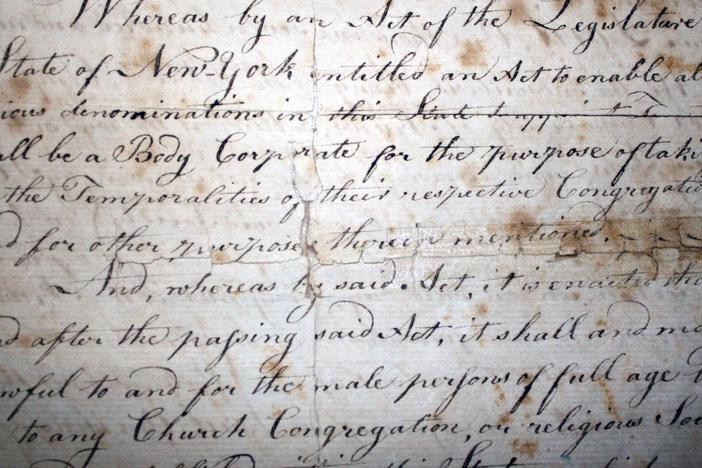 Whereas by an Act of the Legislature
State of New-York entitled an Act to enable al
ious denominations in this State to appoint T
all be a Body Corporate for the purpose of taki
the Temporalities of their respective Congregatio
d for other purposes therein mentioned.
And, whereas by said Act, it is enacted tha
nd after the passing said Act, it shall and ma
wful to and for the male persons of full age
to any Church Congregation, or religious Soc